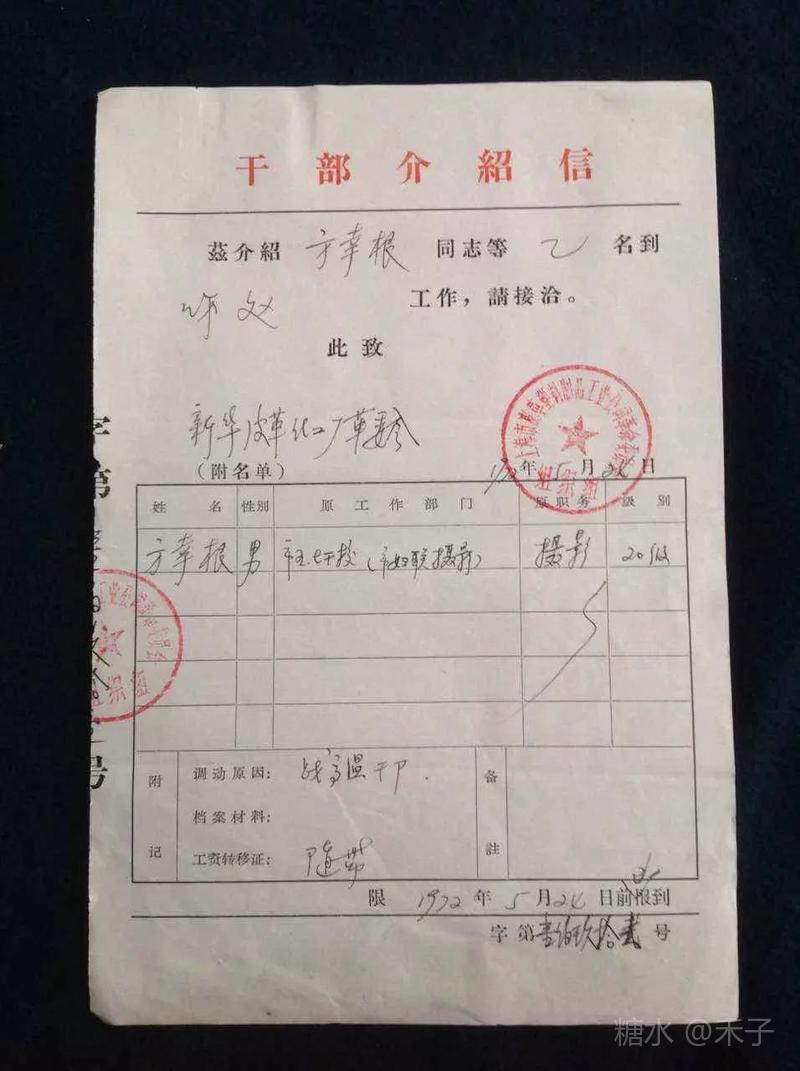 干部介紹信
茲介紹 方幸根 同志等 乙 名到
你处 工作，請接洽。
此致
新华皮革化工厂革委会
（附名单） 年5月24日
组织组
姓名 性别 原工作部门 原职务 级别
方幸根 男 市五.七干校（市妇联摄影） 摄影 20级
附记
调动原因：战高温干部.
档案材料：
工资转移证：随带
备註
限 1972年5月24日前报到
字第壹佰玖拾贰号
字第
号
组织组
糖水 @禾子